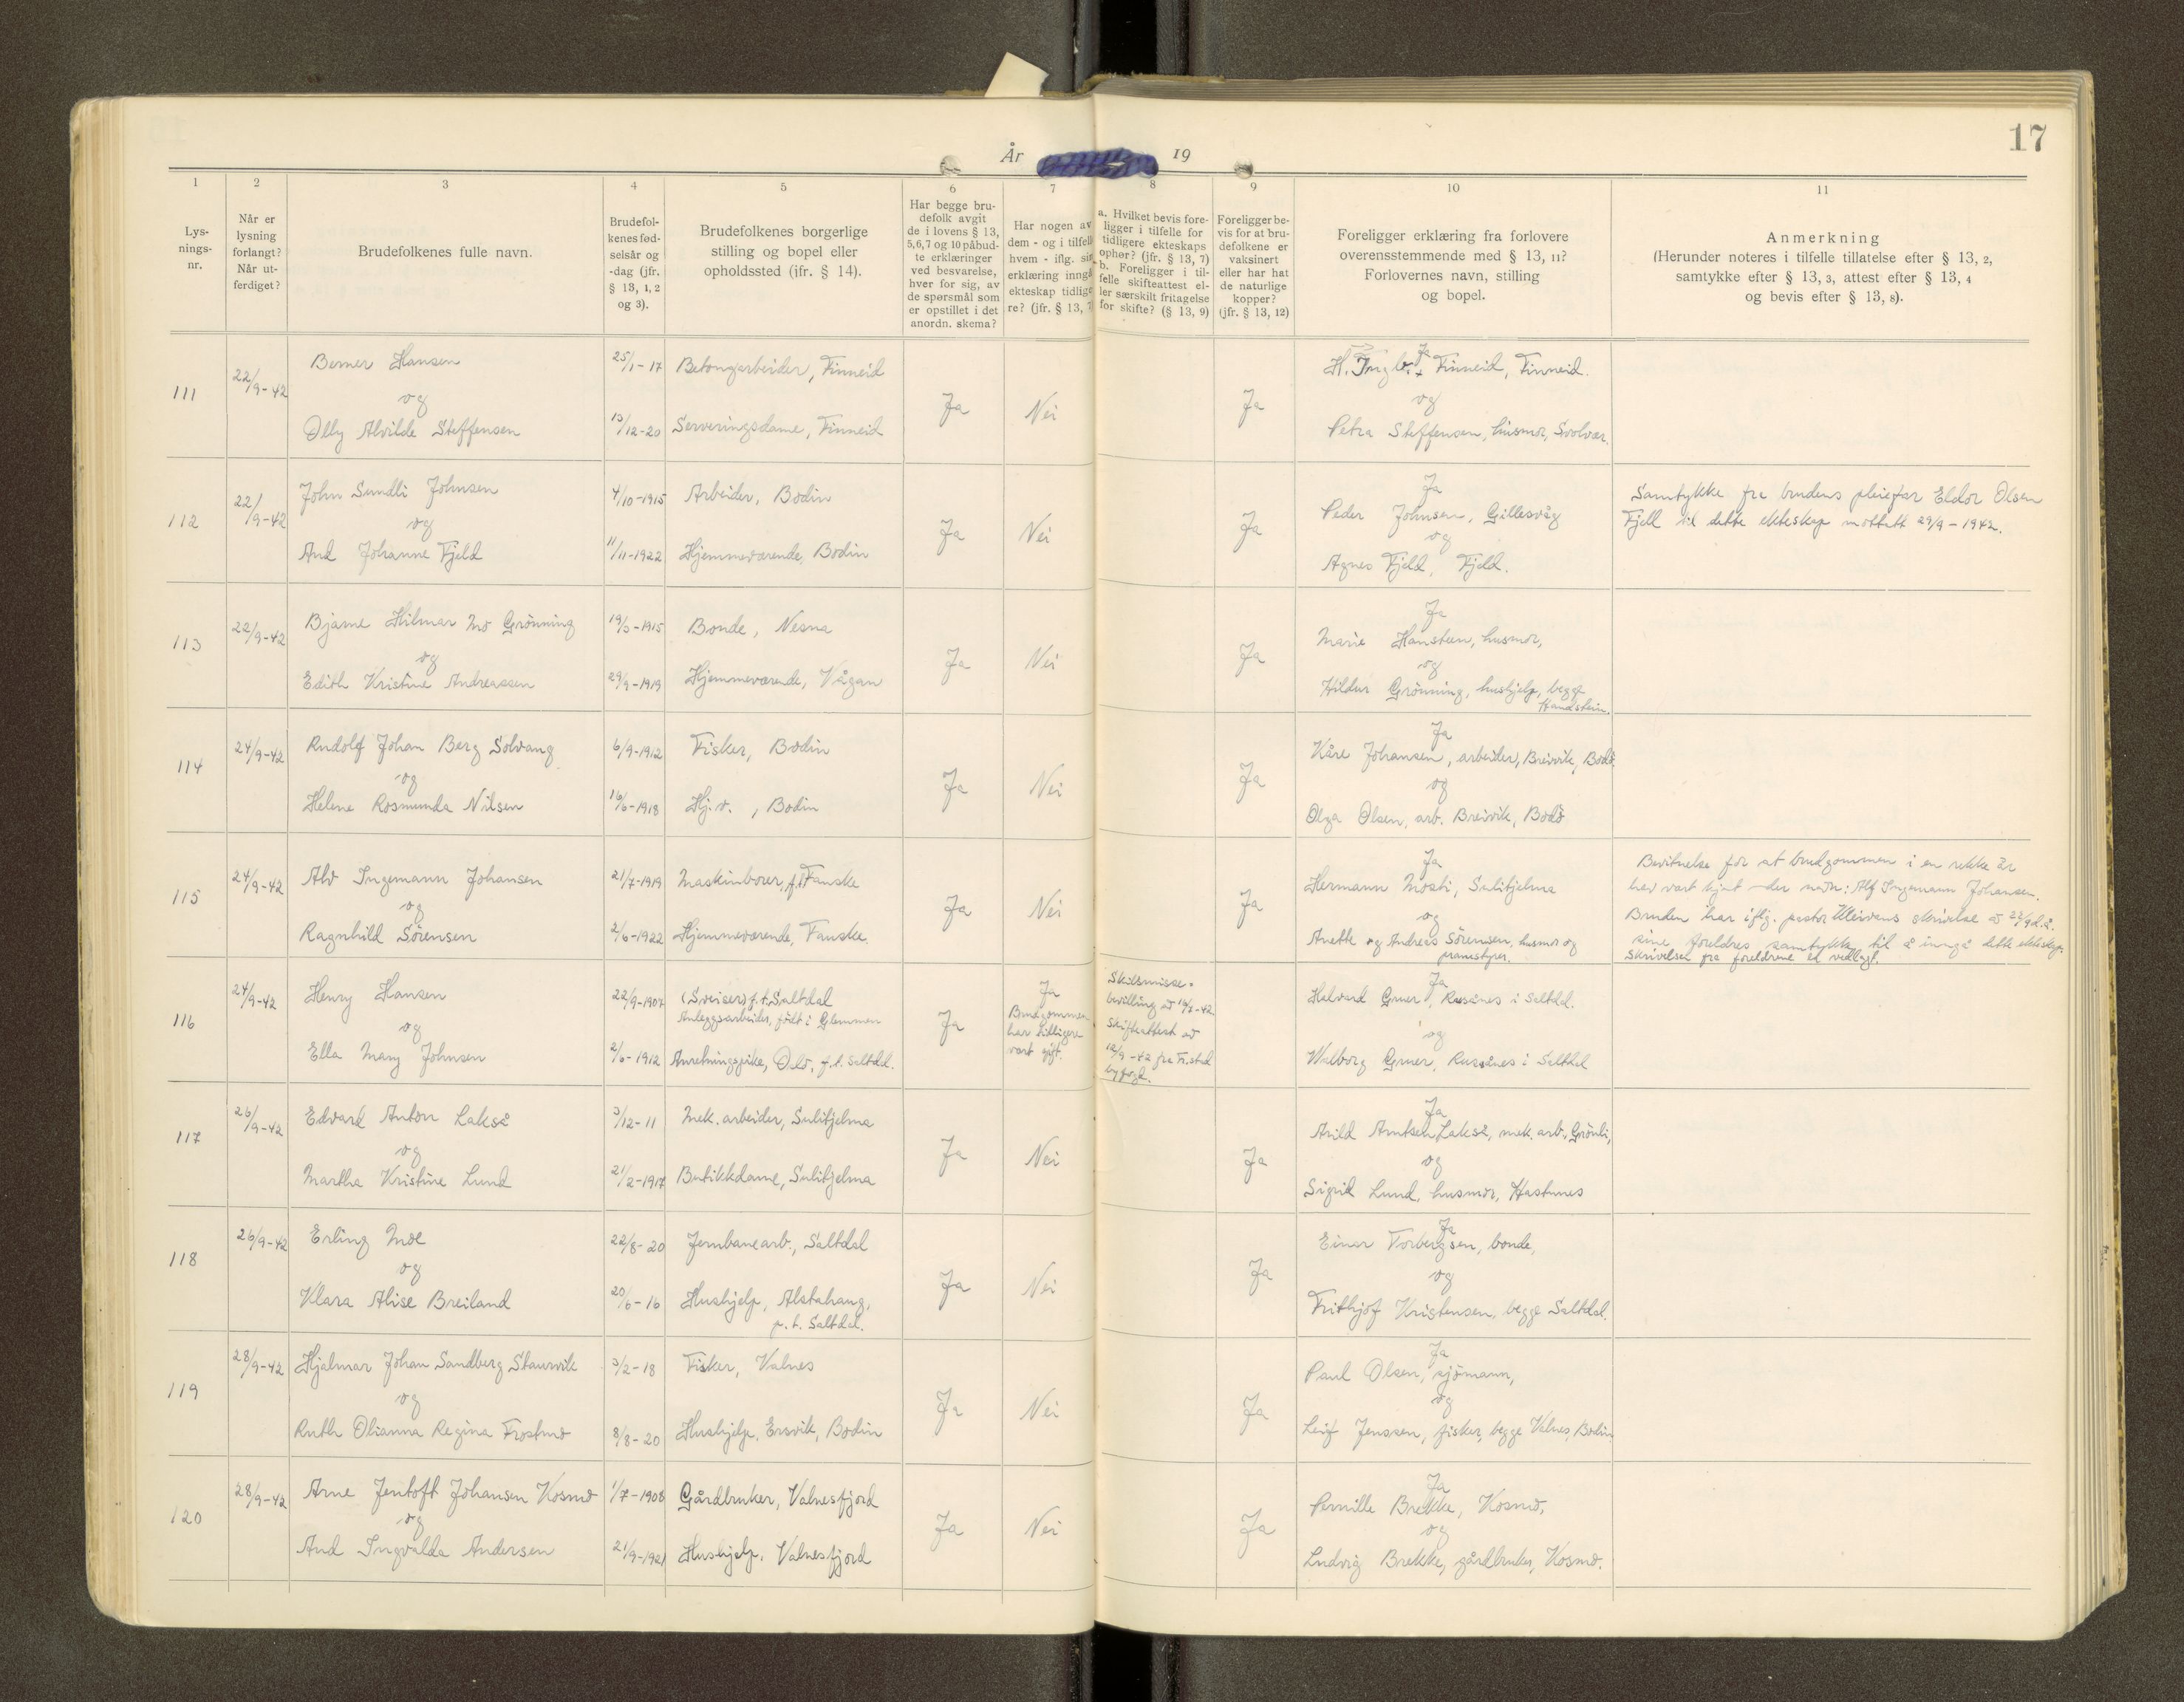 17
År 19
1 2 3 4 5 6 7 8 9 10 11
Lys-
nings-
nr.
Når er
lysning
forlangt?
Når ut-
ferdiget?
Brudefolkenes fulle navn.
Brudefol-
kenes fød-
selsår og
-dag (jfr.
§ 13, 1, 2
og 3).
Brudefolkenes borgerlige
stilling og bopel eller
opholdssted (jfr. § 14).
Har begge bru-
defolk avgit
de i lovens § 13,
5,6,7 og 10 påbud-
te erklæringer
ved besvarelse,
hver for sig, av
de spørsmål som
er opstillet i det
anordn. skema?
Har nogen av
dem - og i tilfelle
hvem - iflg. sin
erklæring inngå
ekteskap tidlige
re? (jfr. § 13, 7
a. Hvilket bevis fore-
ligger i tilfelle for
tidligere ekteskaps
ophør? (jfr. § 13, 7)
b. Foreligger i til-
felle skifteattest el-
ler særskilt fritagelse
for skifte? (§ 13, 9)
Foreligger be-
vis for at bru-
defolkene er
vaksinert
eller har hat
de naturlige
kopper?
(jfr. § 13, 12)
Foreligger erklæring fra forlovere
overensstemmende med § 13, 11?
Forlovernes navn, stilling
og bopel.
Anmerkning
(Herunder noteres i tilfelle tillatelse efter § 13, 2,
samtykke efter § 13, 3, attest efter § 13, 4
og bevis efter § 13, 8).
111 22/9-42 Berner Hansen 25/1-17 Betongarbeider, Finneid
og Ja Nei Ja
Olly Alvilde Steffensen 13/12-20 Serveringsdame, Finneid
Ja
H. Finneid, Finneid.
og
Petra Steffensen, husmor, Svolvær.
112 22/9-42 John Sundli Johnsen 4/10-1915 Arbeider, Bodin
og Ja Nei Ja
Aud Johanne Fjeld 11/11-1922 Hjemmeværende, Bodin
Ja
Peder Johnsen, Gillesvåg
og
Agnes Fjeld, Fjeld.
Samtykke fra brudens pleiefar Eldor Olsen
Fjell til dette ekteskap mottatt 29/9-1942.
113 22/9-42 Bjarne Hilmar Mo Grönning 19/3-1915 Bonde, Nesna
og Ja Nei Ja
Edith Kristine Andreassen 29/9-1919 Hjemmeværende, Vågan
Ja
Marie Hansteen, husmor,
og
Hildur Grönning, hushjelp, begge
Handstein.
114 24/9-42 Rudolf Johan Berg Solvang 6/9-1912 Fisker, Bodin
og Ja Nei Ja
Helene Rosmunda Nilsen 16/6-1918 Hj.v., Bodin
Ja
Kåre Johansen, arbeider, Breivik, Bodö.
og
Olga Olsen, arb. Breivik, Bodö
115 24/9-42 Alv Ingemann Johansen 21/7-1919 Maskinborer, f.t. Fauske
og Ja Nei Ja
Ragnhild Sörensen 2/6-1922 Hjemmeværende, Fauske.
Ja
Hermann Mosti, Sulitjelma
og
Anette og Andreas Sörensen, husmor og
pramstyrer.
Bevitnelse for at brudgommen i en rekke år
har vært kjent under navn: Alf Ingemann Johansen.
Bruden har iflg. pastor Kleivans skrivelse av 22/9 d.å.
sine foreldres samtykke til å inngå dette ekteskap.
Skrivelsen fra foreldrene er vedlagt.
116 24/9-42 Henry Hansen 22/9-1907 (Sveiser) f.t. Saltdal
Anleggsarbeider, født i Glemmen
og Ja
Ella Mary Johnsen 2/6-1912 Anretningspike, Oslo, f.t. Saltdal.
Ja
Brudgommen
har tidligere
vært gift.
Skilsmisse-
bevilling av 16/7-42
Skifteattest av
12/9-42 fra Fr.stad
byfogd.
Ja
Halvard Gruer, Russånes i Saltdal.
og
Walborg Gruer, Russånes i Saltdal
117 26/9-42 Edvard Anton Lakså 3/12-11 Mek. arbeider, Sulitjelma
og Ja Nei Ja
Martha Kristine Lund 21/2-1917 Butikkdame, Sulitjelma
Ja
Arild Arntsen Lakså, mek. arb., Grönli,
og
Sigrid Lund, husmor, Hastunes
118 26/9-42 Erling Moe 22/8-20 Jernbanearb., Saltdal
og Ja Nei Ja
Klara Alise Breiland 20/6-16 Hushjelp, Alstahaug,
p.t. Saltdal.
Ja
Einar Torbergsen, bonde,
og
Frithjof Kristensen, begge Saltdal.
119 28/9-42 Hjalmar Johan Sandberg Staurvik 3/2-18 Fisker, Valnes
og Ja Nei Ja
Ruth Olianna Regina Frostmo 8/8-20 Hushjelp, Ersvik, Bodin
Ja
Paul Olsen, sjömann,
og
Leif Jenssen, fisker, begge Valnes, Bodin
120 28/9-42 Arne Jentoft Johansen Kosmo 1/7-1908 Gårdbruker, Valnesfjord
og Ja Nei Ja
Aud Ingvalda Andersen 21/9-1921 Hushjelp, Valnesfjord
Ja
Pernille Brekke, Kosmo,
og
Ludvig Brekke, gårdbruker, Kosmo.